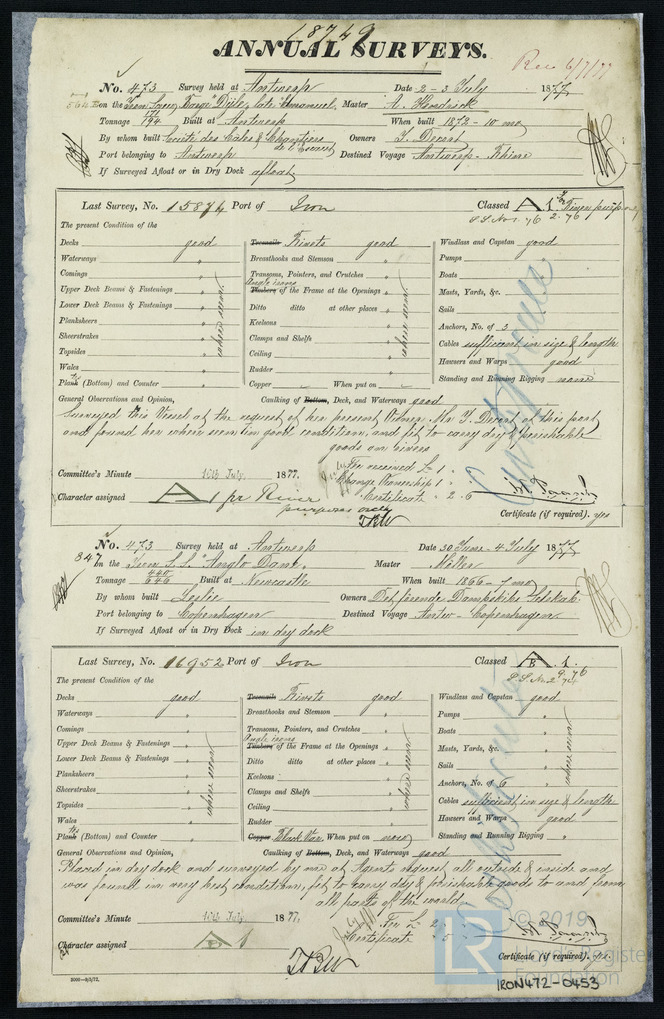 18749
ANNUAL SURVEYS.
Rec 6/7/77
No. 473 Survey held at Antwerp Date 2-3 July 1877
564 on the Iron Screw Barge "Dijle, late "Emanuel Master A. Hendrick
Tonnage Built at Antwerp When built 1872 - 10 mo
By whom built Société des Cales & Chantiers de l'Escaut Owners J. Decort
Port belonging to Antwerp Destined Voyage Antwerp - Rhine
If Surveyed Afloat or in Dry Dock afloat
Last Survey, No. 15874 Port of Iron Classed A 1 for River purp only
S.S. No 1. 76 2. 76
The present Condition of the
Decks good Treenails Rivets good Windlass and Capstan good
Waterways " Breasthooks and Stemson " Pumps
Comings " Transoms, Pointers, and Crutches " Boats
Angle irons
Upper Deck Beams & Fastenings " Timbers of the Frame at the Openings " Masts, Yards, &c.
Lower Deck Beams & Fastenings " Ditto ditto at other places " Sails
Planksheers " Keelsons " Anchors, No. of 3
Sheerstrakes " Clamps and Shelfs " Cables sufficient in size & length
Topsides " Ceiling " Hawsers and Warps good
Wales " Rudder " Standing and Running Rigging none
Plank (Bottom) and Counter " Copper When put on
where seen
where seen
General Observations and Opinion, Caulking of Bottom, Deck, and Waterways good
Surveyed this Vessel at the request of her present Owner Mr J. Decort of this port
and found her where seen in good condition, and fit to carry dry & perishable
goods on rivers
Fee received £ 1 :
Committee's Minute 10th July 1877. Change Ownership 1 :
Character assigned A 1 for River Certificate " 2 . 6
purposes only
Certificate (if required). yes
No. 473 Survey held at Antwerp Date 30 June - 4 July 1877
847 on the Iron S.S. "Anglo Dane" Master Möller
Tonnage 440 646 Built at Newcastle When built 1866 - 7 mo
By whom built Leslie Owners Det forende Dampskibs Selskab
Port belonging to Copenhagen Destined Voyage Antw - Copenhagen
If Surveyed Afloat or in Dry Dock in dry dock
Last Survey, No. 16952 Port of Iron Classed A B 1.
S.S. No 2 74 9.76
The present Condition of the
Decks good Treenails Rivets good Windlass and Capstan good
Waterways " Breasthooks and Stemson " Pumps "
Comings " Transoms, Pointers, and Crutches " Boats "
Angle irons
Upper Deck Beams & Fastenings " Timbers of the Frame at the Openings " Masts, Yards, &c. "
Lower Deck Beams & Fastenings " Ditto ditto at other places " Sails "
Planksheers " Keelsons " Anchors, No. of 6
Sheerstrakes " Clamps and Shelfs " Cables sufficient in size & length
Topsides " Ceiling " Hawsers and Warps good
Wales " Rudder " Standing and Running Rigging "
Plank (Bottom) and Counter " Copper Black Var. When put on now
where seen
where seen
where seen
General Observations and Opinion, Caulking of Bottom, Deck, and Waterways good
Placed in dry dock and surveyed by me at Agents request all outside & inside and
was found in very best condition, fit to carry dry & perishable goods to and from
all parts of the world.
Committee's Minute 10th July 1877. Fee £ 2
Certificate " 5 "
Character assigned A B 1
Certificate (if required). yes.
2000-3/2/77.
© 2019
LR Lloyd's Register
Foundation
IRON472-0453